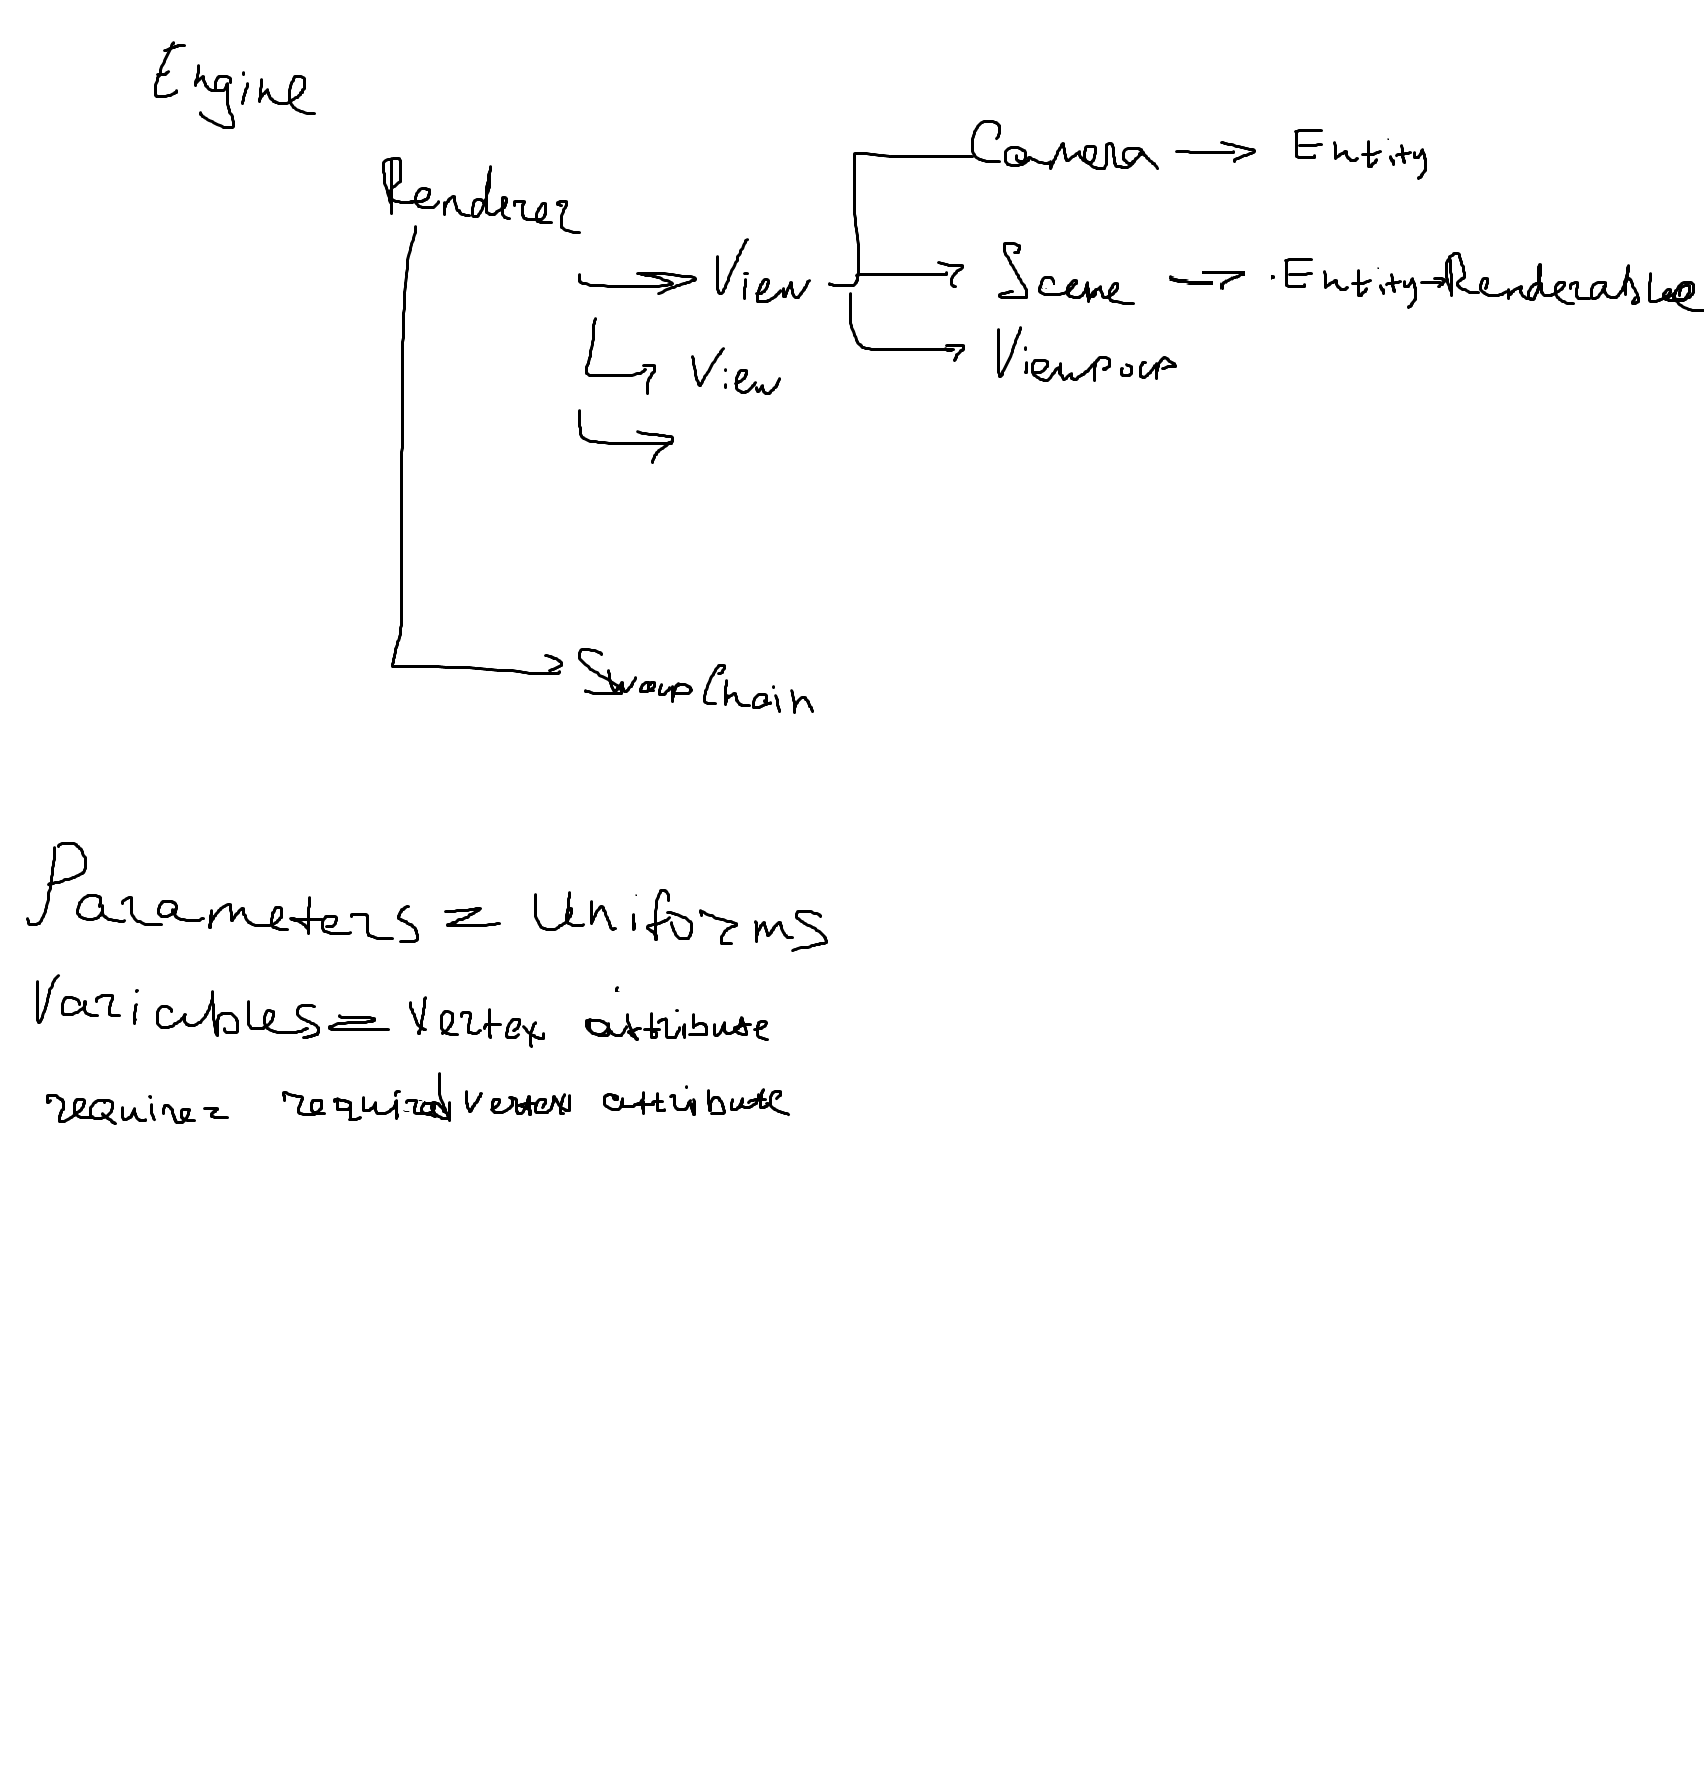 Engine
Renderer
Camera → Entity
View → Scene → Entity → Renderable
View
SwapChain
Parameters = Uniforms
Variables = Vertex attribute
require = required vertex attribute